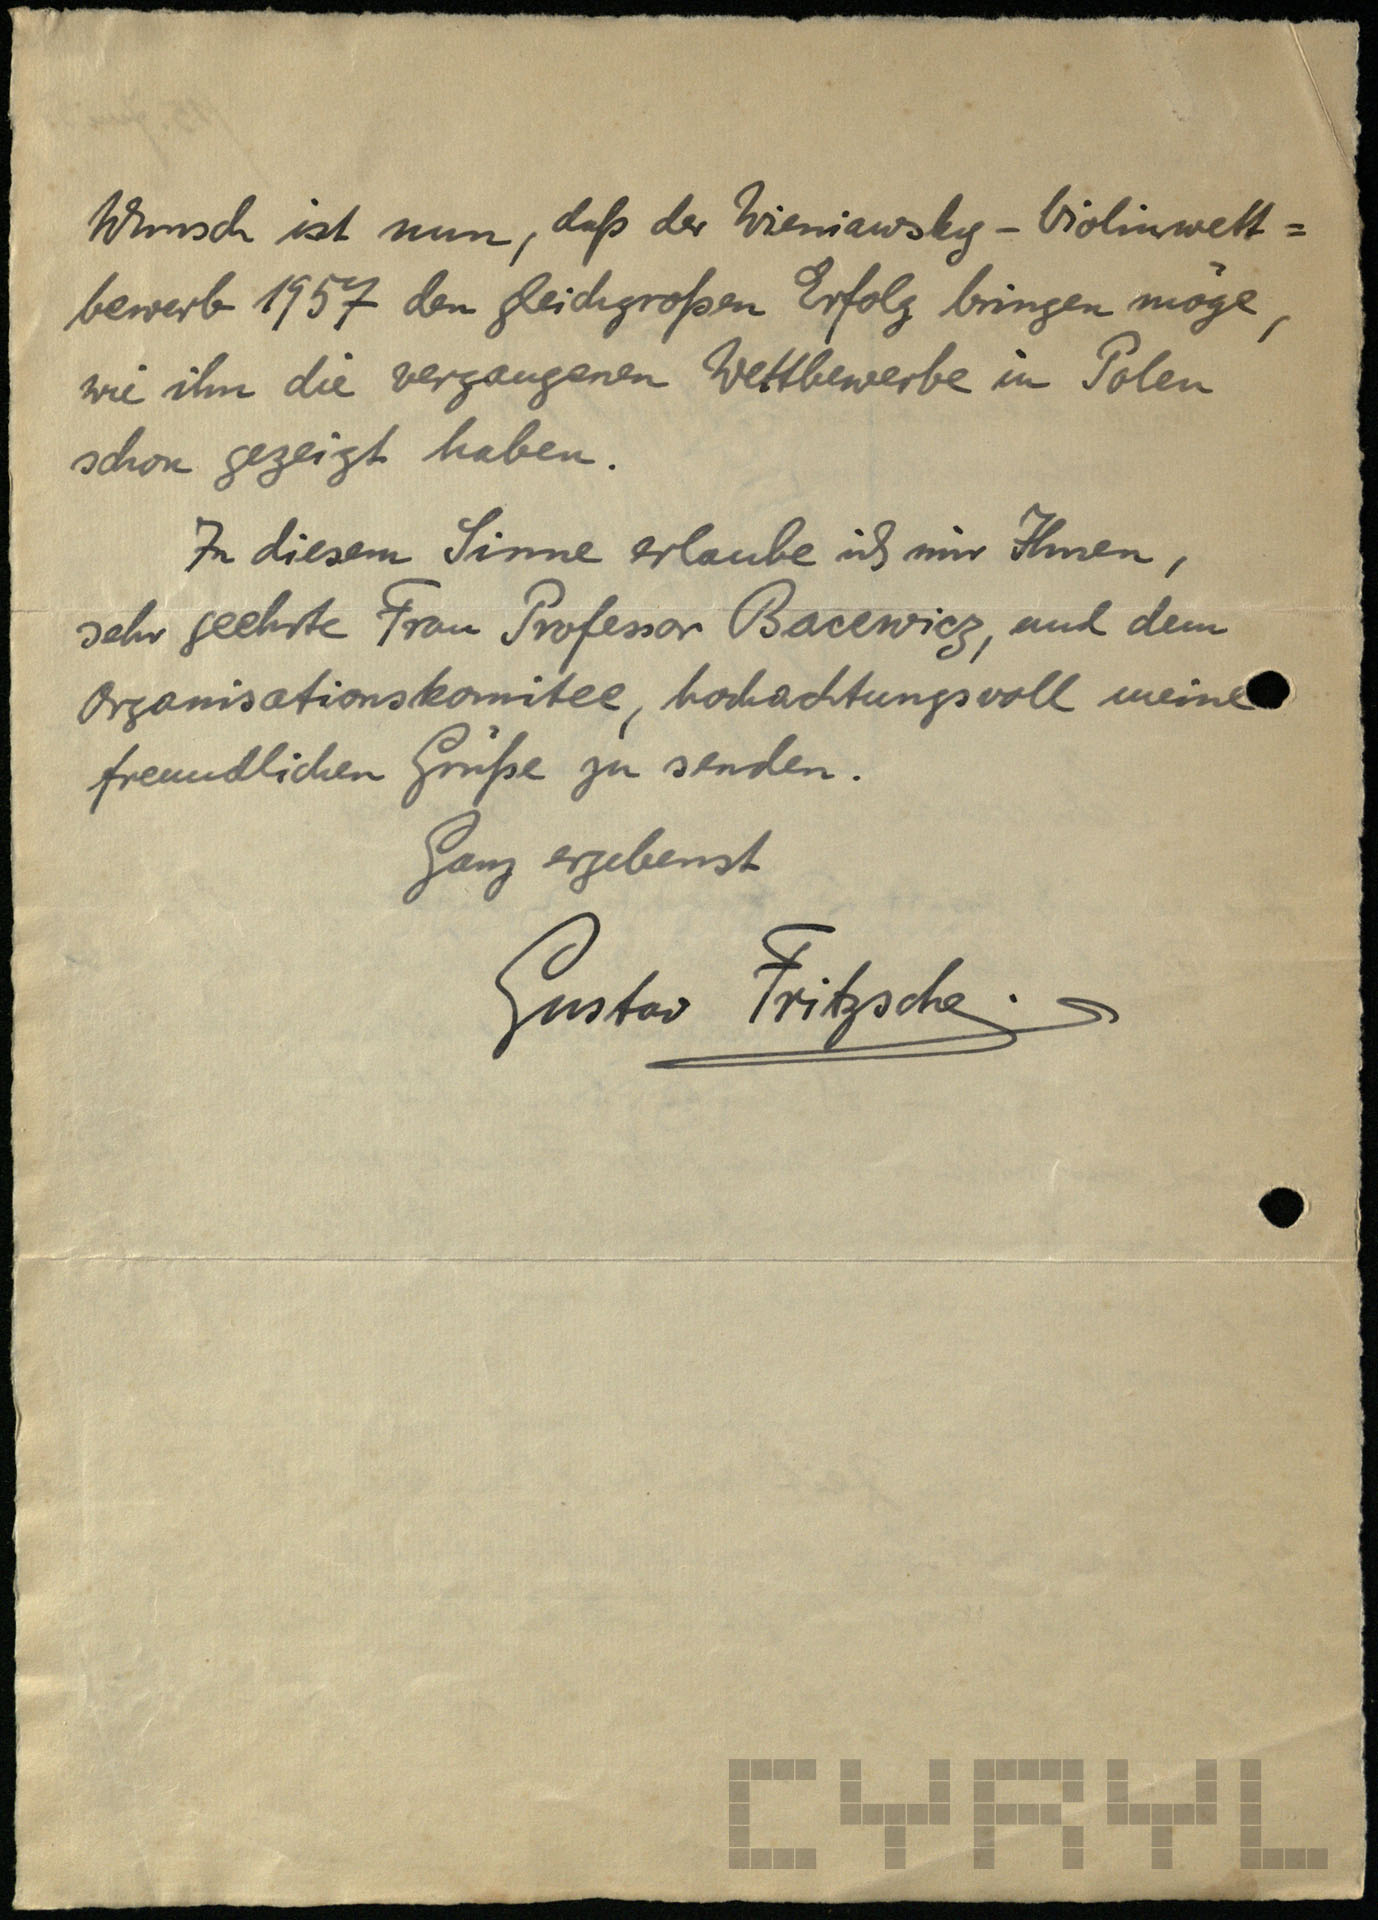 Wunsch ist nun, daß der Wieniawsky - Violinwett=
bewerb 1957 den gleichgroßen Erfolg bringen möge,
wie ihn die vergangenen Wettbewerbe in Polen
schon gezeigt haben.
In diesem Sinne erlaube ich mir Ihnen,
sehr geehrte Frau Professor Bacewicz, und dem
Organisationskomitee, hochachtungsvoll meine
freundlichen Grüße zu senden.
Ganz ergebenst
Gustav Fritzsche.
CYRYL